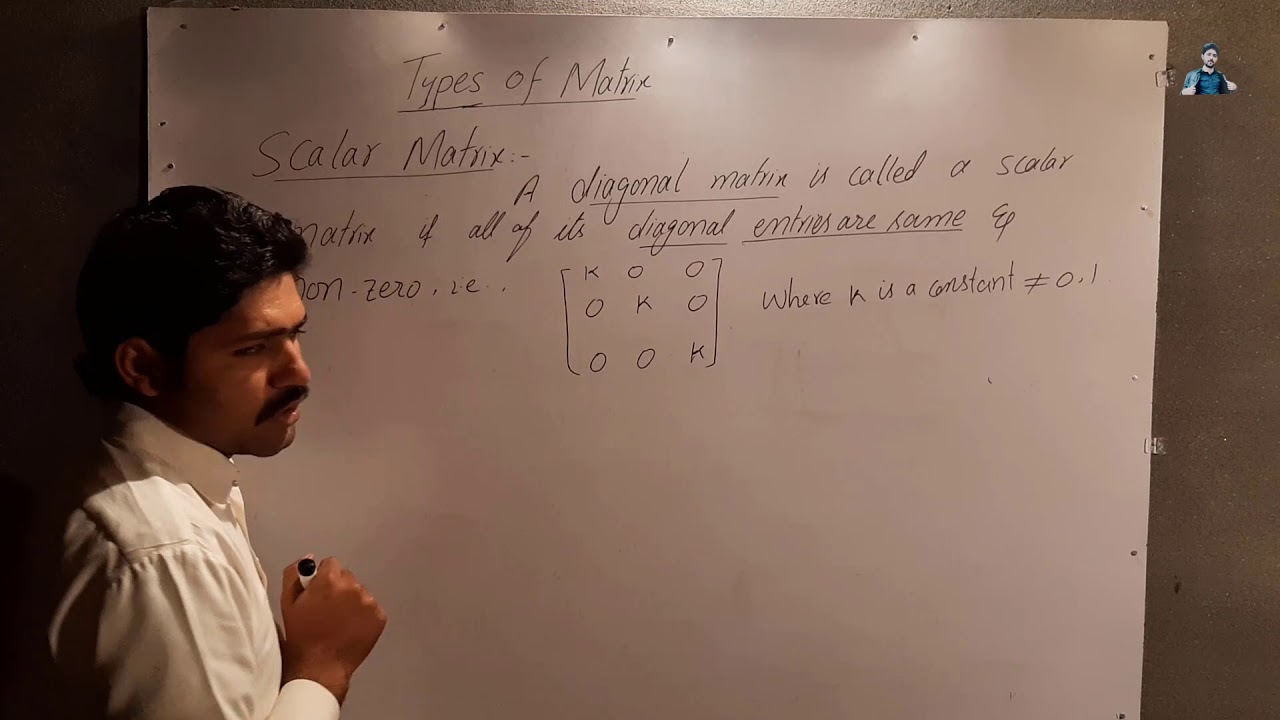 Types of Matrix
Scalar Matrix:-
A diagonal matrix is called a scalar
matrix if all of its diagonal entries are same &
non-zero, i.e.,
K 0 0
0 K 0
0 0 K
Where K is a constant ≠ 0, 1